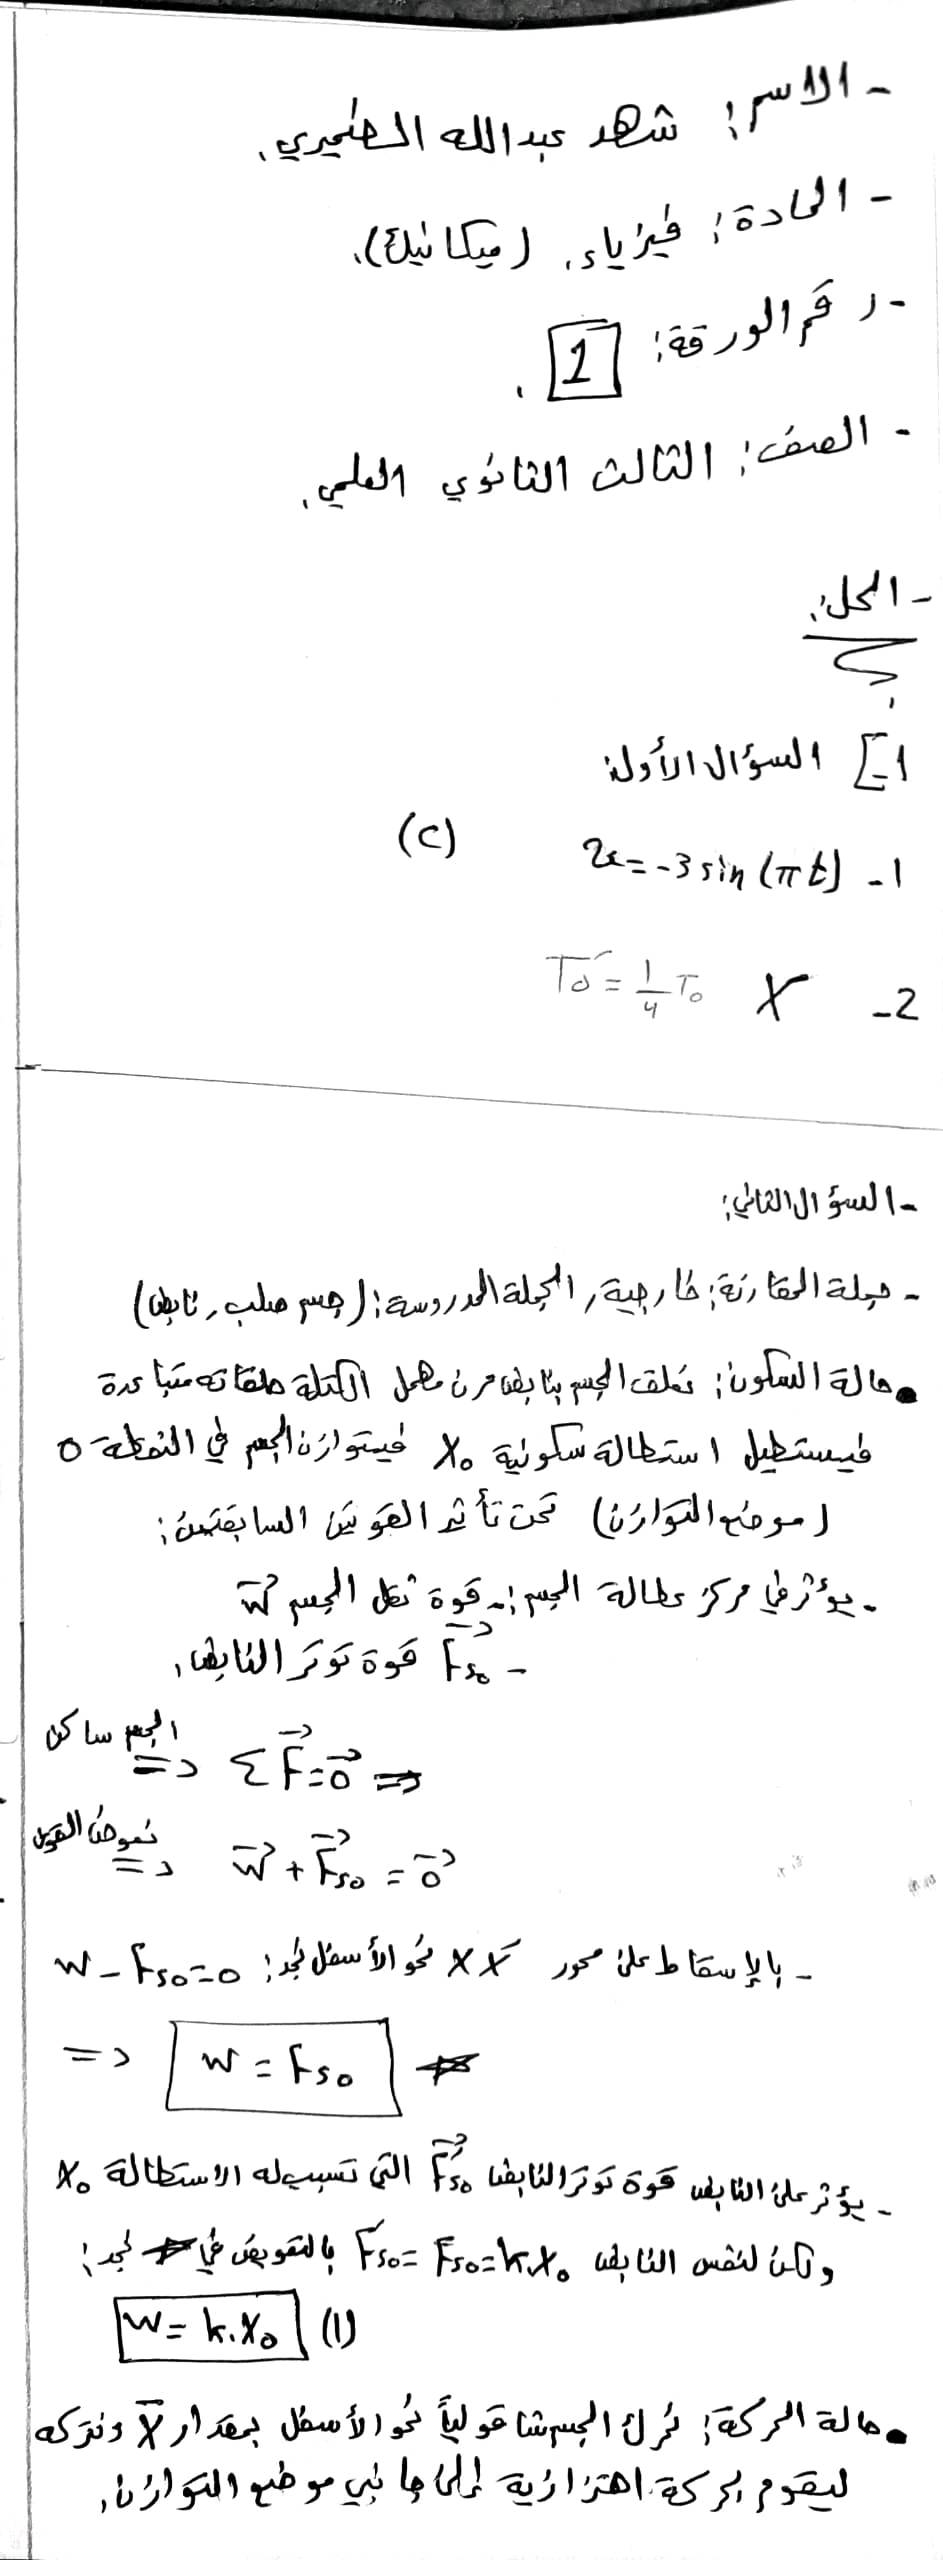 - الاسم: شهد عبدالله الضميري.
- المادة: فيزياء. (ميكانيك).
- رقم الورقة: 1 .
- الصف: الثالث الثانوي العلمي.
- الحل:
1] السؤال الأول:
1- x = -3 sin (πt) (C)
2- X T₀' = 1/4 T₀
- السؤال الثاني:
- جملة المقارنة: خارجية, الجملة المدروسة: (جسم صلب, نابض)
• حالة السكون: نعلق الجسم بنابض مرن مهمل الكتلة حلقاته متباعدة
فيستطيل استطالة سكونية x₀ فيتوازن الجسم في النقطة o
(موضع التوازن) تحت تأثير القوتين السابقتين:
- يؤثر في مركز عطالة الجسم: - قوة ثقل الجسم W⃗
- F⃗s₀ قوة توتر النابض.
الجسم ساكن => Σ F⃗ = 0⃗ =>
نعوض القوى => W⃗ + F⃗s₀ = 0⃗
- بالإسقاط على محور x́x نحو الأسفل نجد: W - Fs₀ = 0
=> W = Fs₀ *
- يؤثر على النابض قوة توتر النابض F⃗'s₀ التي تسبب له الاستطالة x₀
ولكن لنفس النابض F's₀ = Fs₀ = k.x₀ بالتعويض في * نجد:
W = k.x₀ (1)
• حالة الحركة: نحرك الجسم شاقولياً نحو الأسفل بمقدار x̄ ونتركه
ليقوم بحركة اهتزازية إلى جانبي موضع التوازن.